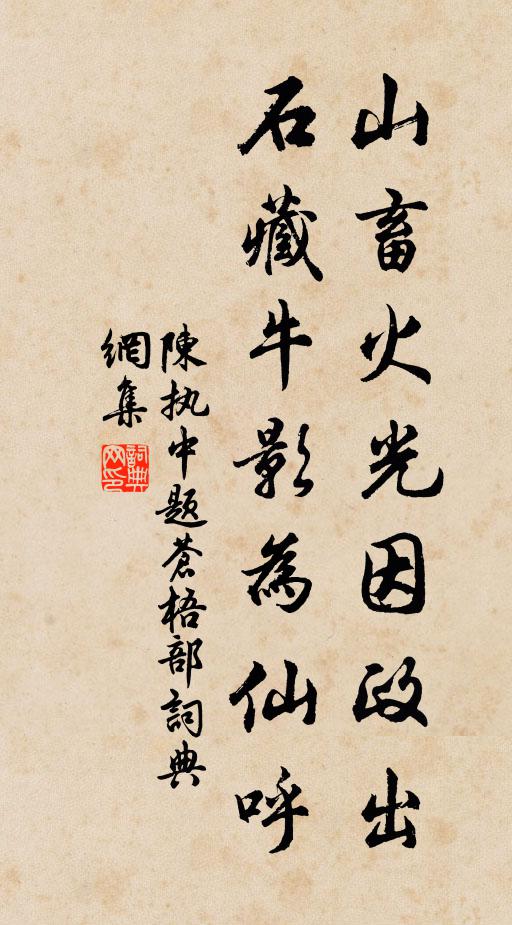 山畜火光因政出
石藏牛影為仙呼
陳执中题蒼梧部詞典
網集
詞典網印